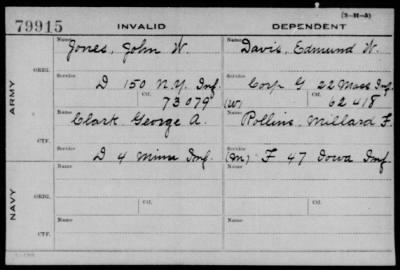 (3-H-5)
79915 INVALID DEPENDENT
Name Jones, John W. Name Davis, Edmund W.
ARMY
ORIG.
Service D 150 N.Y. Inf. Service Corp G 22 Mass Inf.
Ctf. 73079 (W) Ctf. 62418
Name Clark, George A. Name Rollins, Millard F.
CTF.
Service D 4 Minn Inf. Service (M) F 47 Iowa Inf.
NAVY
Name Name
ORIG.
Service Ctf. Service Ctf.
Name Name
CTF.
Service Service